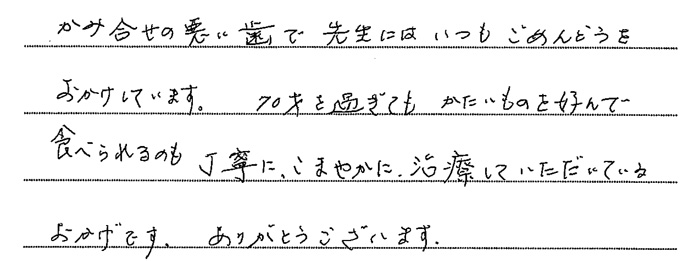 かみ合せの悪い歯で 先生には いつも ごめんどうを
おかけしています。 70才を過ぎても かたいものを好んで
食べられるのも 丁寧に、こまやかに、治療していただいている
おかげです。 ありがとうございます。